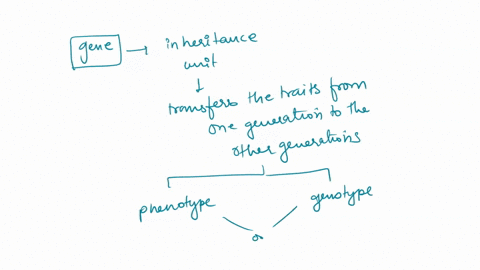 gene → inheritance
unit
↓
transfers the traits from
one generation to the
other generations
phenotype genotype